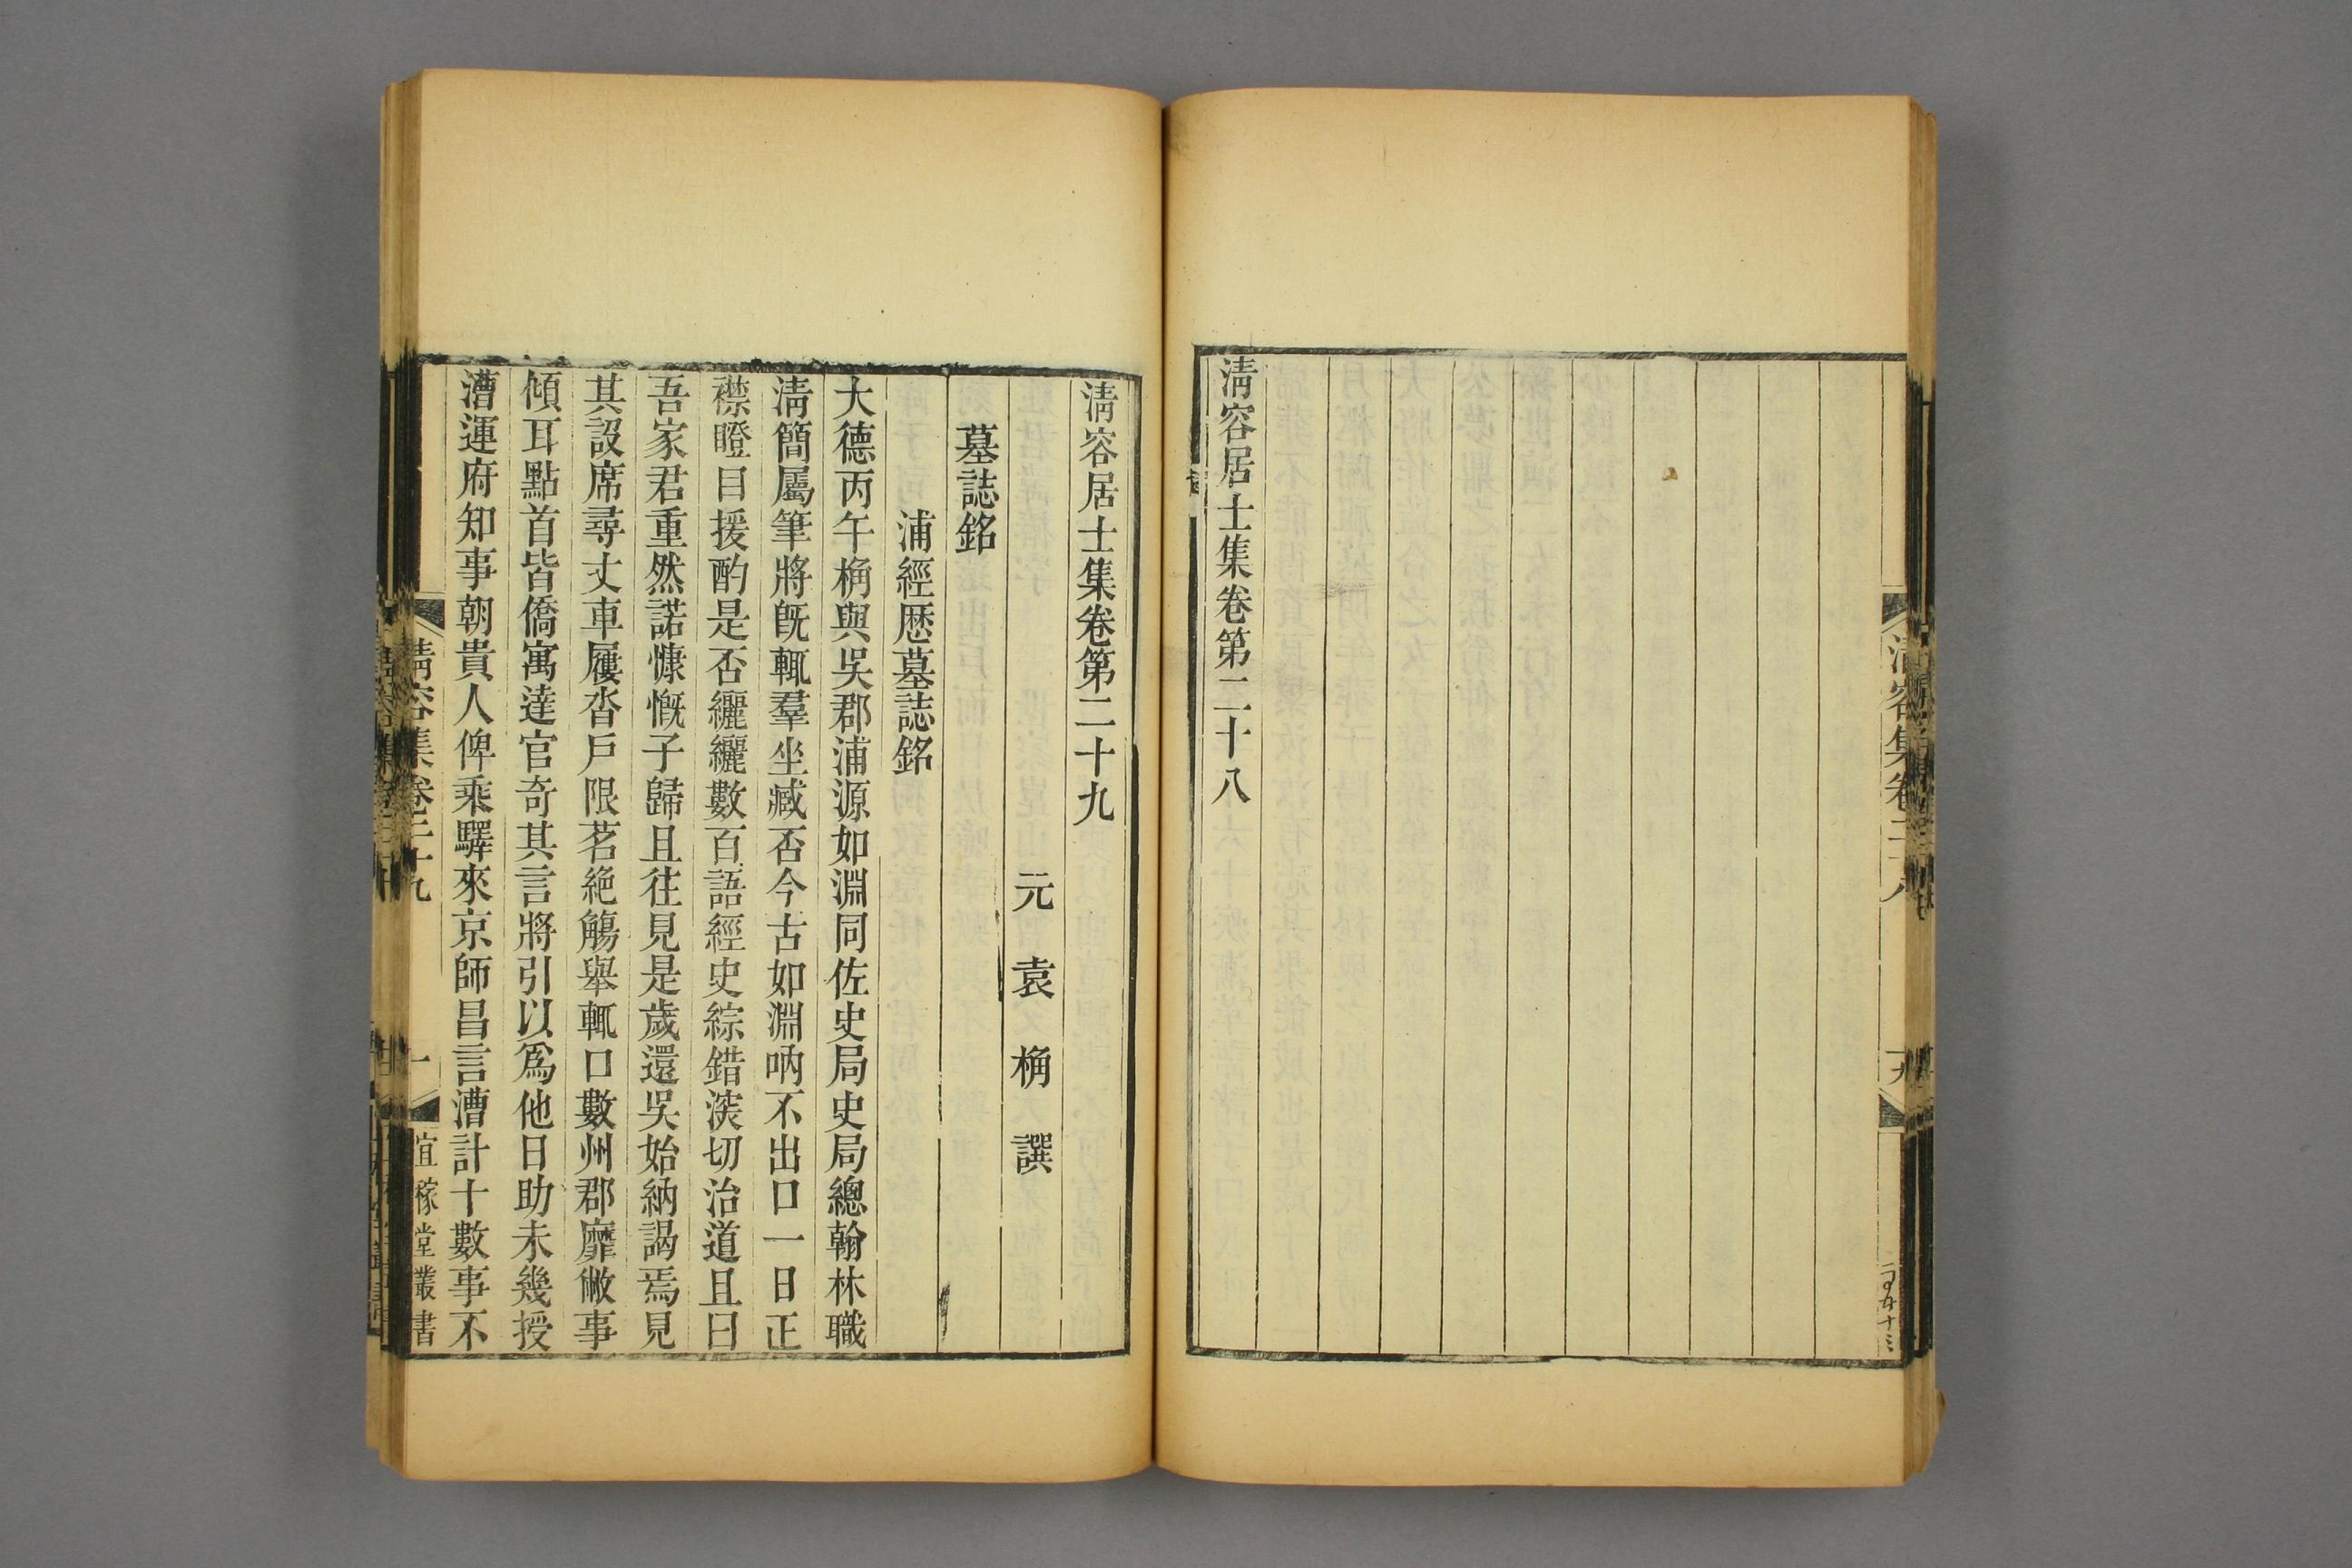 清容居士集卷第二十八
清容居士集卷第二十九
元袁桷譔
墓誌銘
浦經歷墓誌銘
大德丙午桷與吳郡浦源如淵同佐史局史局總翰林職
淸簡屬筆將旣輒羣坐臧否今古如淵吶不出口一日正
襟瞪目援酌是否纚纚數百語經史綜錯淡切治道且曰
吾家君重然諾慷慨子歸且往見是歲還吳始納謁焉見
其設席尋丈車屨沓戶限茗絶觴舉輒口數州郡靡敝事
傾耳點首皆僑寓達官奇其言將引以爲他日助未幾授
漕運府知事朝貴人俾乘驛來京師昌言漕計十數事不
清容集卷二十九
一
宜稼堂叢書
清容集卷二十八
十九